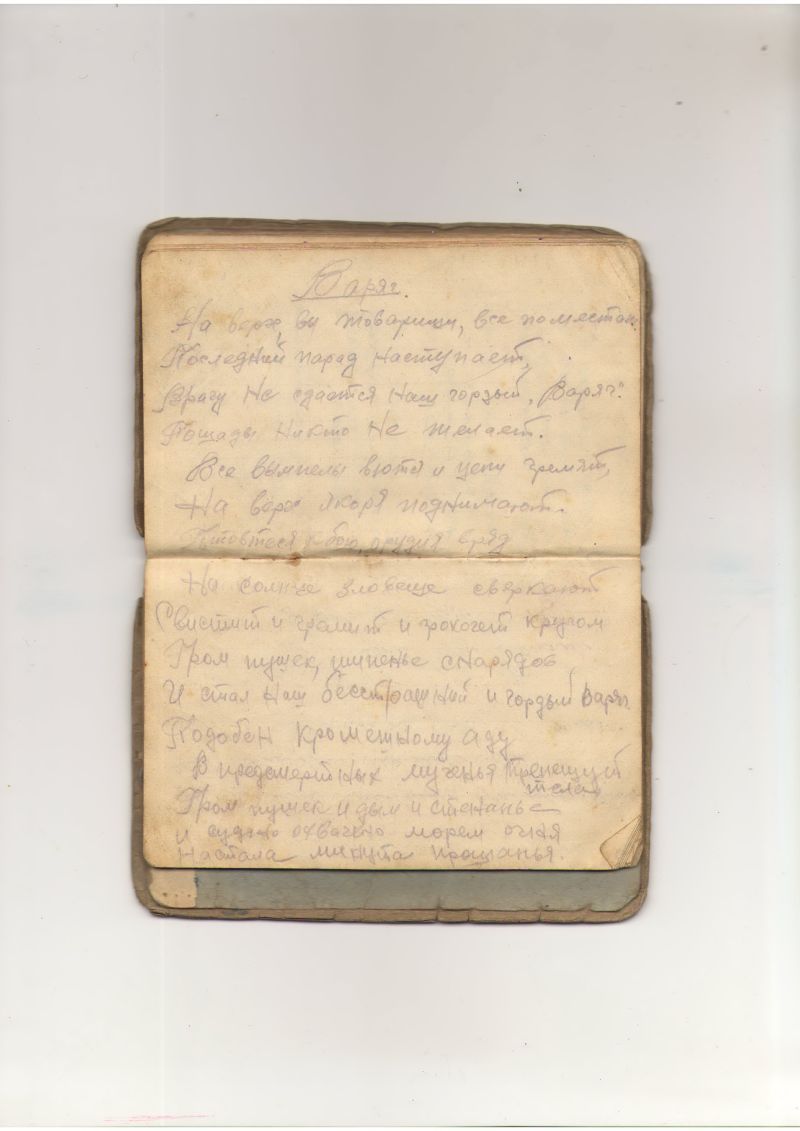 Варяг.
На верх, вы товарищи, все по местам
Последний парад наступает,
Врагу не сдается наш гордый „Варяг".
Пощады никто не желает.
Все вымпелы вются и цепи гремят,
На верх якоря поднимают.
Готовтеся к бою, орудия вряд
На солнце зловеще сверкают
Свистит и гремит и грохочет кругом
Гром пушек, шипенье снарядов
И стал наш бесстрашний и гордый Варяг
Подобен кромешному аду
В предсмертных мученья трепещут
тела
Гром пушек и дым и стенанье
и судно охвачено морем огня
Настала минута прощанья.